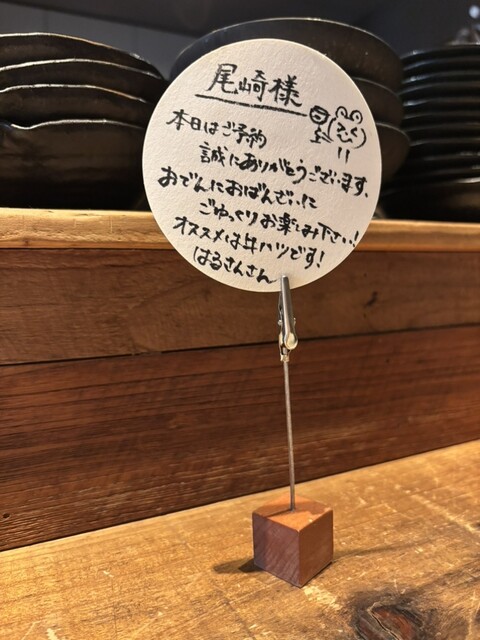 尾崎様
本日はご予約
誠にありがとうございます。
おでんにおばんざいに
ごゆっくりお楽しみ下さい!
オススメは牛ハツです!
はるさんさん